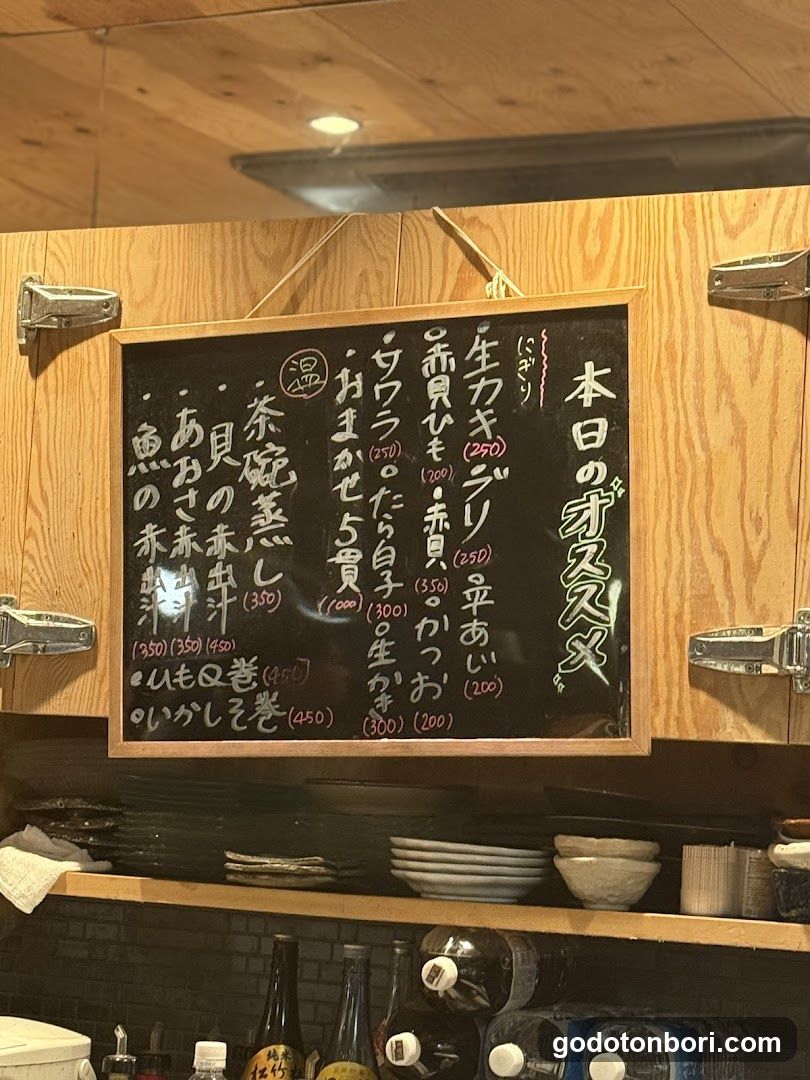 本日のオススメ
にぎり
生カキ(250)・ブリ(250)・平あじ(200)
・赤貝ひも(200)・赤貝(350)・かつお(200)
・サワラ(250)・たら白子(300)・生かき(300)
・おまかせ5貫(1000)
温
・茶碗蒸し(350)
・貝の赤出汁(450)
・あおさ赤出汁(350)
・魚の赤出汁(350)
・ひもQ巻(450)
・いかしそ巻(450)
純米
松竹梅
godotonbori.com